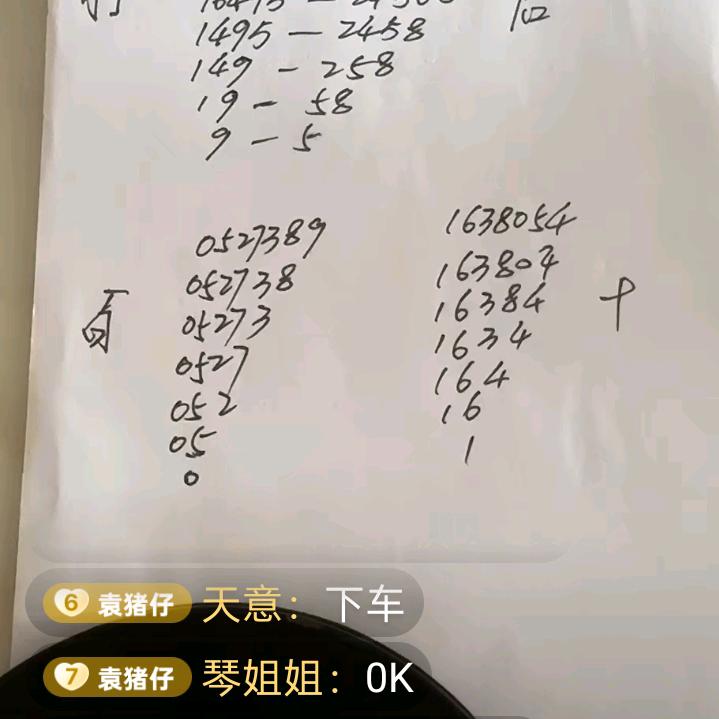 1495 - 2458
149 - 258
19 - 58
9 - 5
0527389 1638054
052738 163804
百 05273 16384 十
0527 1634
052 164
05 16
0 1
6 袁猪仔 天意：下车
7 袁猪仔 琴姐姐：OK